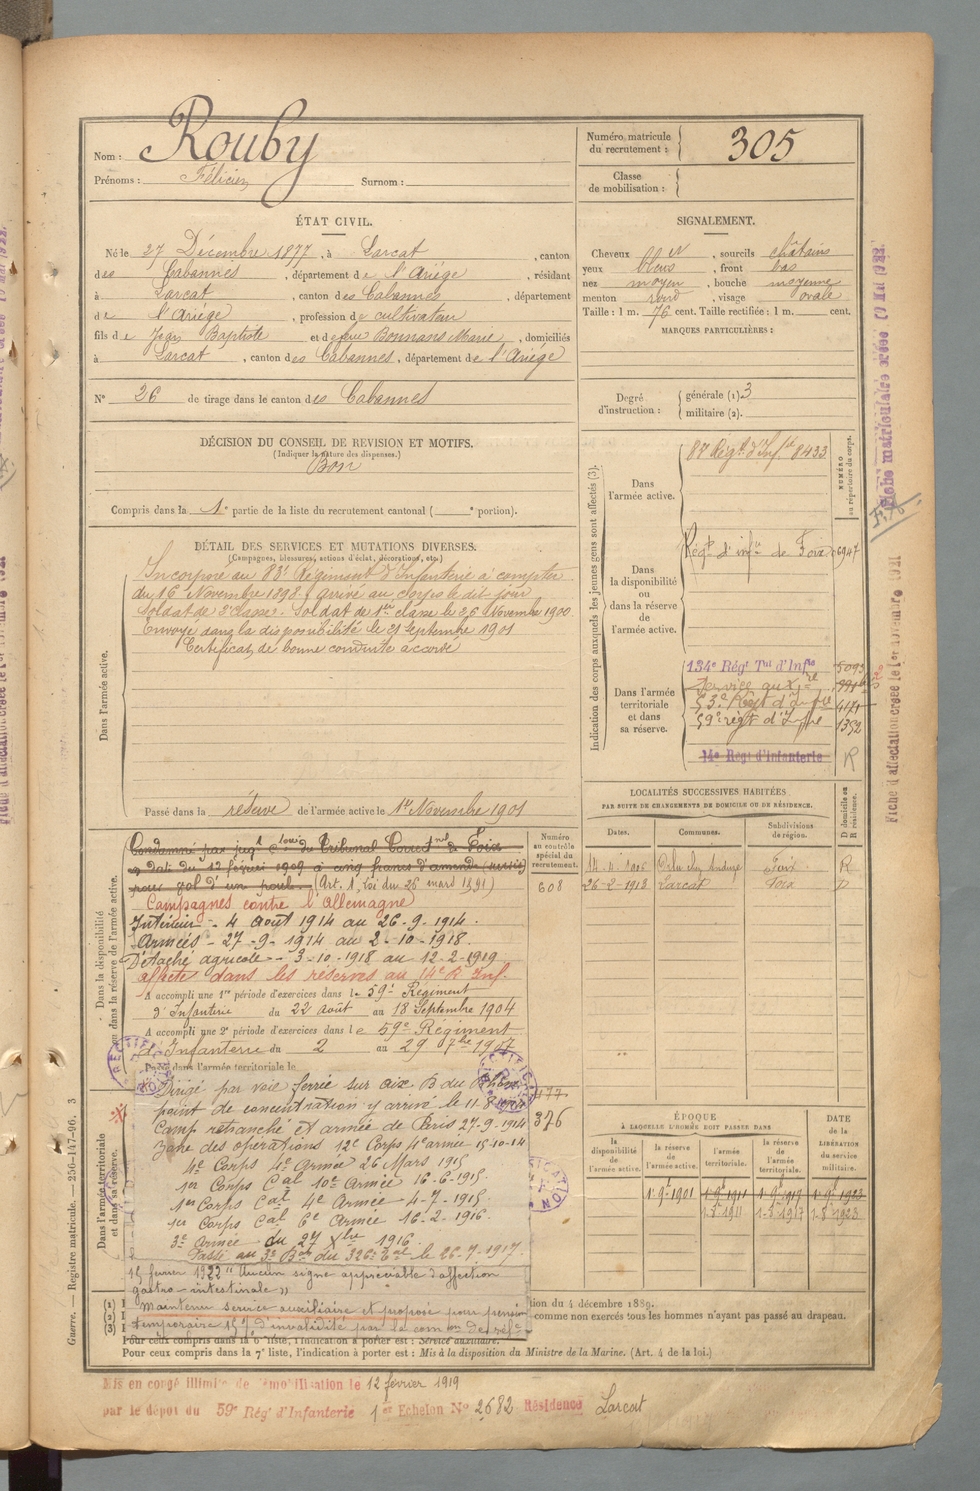 Nom : Rouby
Prénoms : Félicien Surnom :
Numéro matricule du recrutement : 305
Classe de mobilisation :
ÉTAT CIVIL.
Né le 27 Décembre 1877, à Larcat, canton
des Cabannes, département de l'Ariège, résidant
à Larcat, canton des Cabannes, département
de l'Ariège, profession de cultivateur
fils de Jean Baptiste et de feue Bonnans Marie, domiciliés
à Larcat, canton des Cabannes, département de l'Ariège
N° 26 de tirage dans le canton des Cabannes
SIGNALEMENT.
Cheveux , sourcils châtains
yeux bleus, front bas
nez moyen, bouche moyenne
menton rond, visage ovale
Taille : 1 m. 76 cent. Taille rectifiée : 1 m. cent.
MARQUES PARTICULIÈRES :
Degré d'instruction : générale (1) 3
militaire (2).
DÉCISION DU CONSEIL DE REVISION ET MOTIFS.
(Indiquer la nature des dispenses.)
Bon
Compris dans la 1e partie de la liste du recrutement cantonal ( e portion).
DÉTAIL DES SERVICES ET MUTATIONS DIVERSES.
(Campagnes, blessures, actions d'éclat, décorations, etc.)
Dans l'armée active.
Incorporé au 83e Régiment d'Infanterie à compter
du 16 Novembre 1898. arrivé au corps le dit jour
Soldat de 2e classe. Soldat de 1ère classe le 26 Novembre 1900
Envoyé dans la disponibilité le 21 Septembre 1901
Certificat de bonne conduite accordé
Passé dans la réserve de l'armée active le 1er Novembre 1901
Indication des corps auxquels les jeunes gens sont affectés (3).
NUMÉRO au répertoire du corps.
Dans l'armée active.
Régt d'Infie 8433
Dans la disponibilité ou dans la réserve de l'armée active.
Régt d'infie de Foix 6947
Dans l'armée territoriale et dans sa réserve.
134e Régt Tal d'Infie
Service auxre
53e Régt d'Infie
59e régt d'Infie 1352
14e Régt d'Infanterie R
LOCALITÉS SUCCESSIVES HABITÉES
PAR SUITE DE CHANGEMENTS DE DOMICILE OU DE RÉSIDENCE.
Dates. Communes. Subdivisions de région. D domicile ou R résidence.
Foix R
26-2-1913 Larcat Foix D
Dans la disponibilité ou dans la réserve de l'armée active.
Numéro au contrôle spécial du recrutement.
608
Condamné par jugt du Tribunal Correctnel de Foix
en date du 12 février 1909 à cinq francs d'amende (sursis)
pour vol d'un poule. (Art. 1, Loi du 26 mars 1891)
Campagnes contre l'Allemagne
Intérieur - 4 Août 1914 au 26-9-1914.
Armées - 27-9-1914 au 2-10-1918.
Détaché agricole - 3-10-1918 au 12-2-1919.
affecté dans les réserves au 14e R Inf.
A accompli une 1re période d'exercices dans le 59e Régiment
d'Infanterie du 22 août au 18 Septembre 1904
A accompli une 2e période d'exercices dans le 59e Régiment
d'Infanterie du 2 au 29 7bre 1907
Passé dans l'armée territoriale le
Dans l'armée territoriale et dans sa réserve.
Dirigé par voie ferrée sur Aix B du Rhône
point de concentration y arrivé le
Camp retranché et armée de Paris 27-9-1914
Zone des opérations 12e Corps 4e armée 15-10-14
4e Corps 4e Armée 26 Mars 1915
1er Corps Cal 10e Armée 16-6-1915.
1er Corps Cal 4e Armée - 4-7-1915.
1er Corps Cal 6e Armée 16-2-1916.
3e Armée du 27 Xbre 1916.
Passé au 3e Bon du 326e Tal le 26-7-1917.
376
15 février 1922 "Aucun signe appréciable d'affection
gastro-intestinale"
Maintenu service auxiliaire et proposé pour pension
ÉPOQUE
À LAQUELLE L'HOMME DOIT PASSER DANS
la disponibilité de l'armée active. la réserve de l'armée active. l'armée territoriale. la réserve de l'armée territoriale. DATE de la LIBÉRATION du service militaire.
1er 9bre 1901 1er 9bre 1911 1er 9bre 1917 1er 9bre 1923
1-8-1911 1-8-1917 1-8-1923
(1)
(2)
(3)
tion du 4 décembre 1889.
comme non exercés tous les hommes n'ayant pas passé au drapeau.
Pour ceux compris dans la 6e liste, l'indication à porter est : Service auxiliaire.
Pour ceux compris dans la 7e liste, l'indication à porter est : Mis à la disposition du Ministre de la Marine. (Art. 4 de la loi.)
Mis en congé illimité de démobilisation le 12 février 1919
par le dépôt du 59e Régt d'Infanterie 1er Echelon N° 2682 Résidence Larcat
Guerre. — Registre matricule. — 256-147-96. 3
Fiche matriculaire créée
Fiche d'affectation créée le 1er novembre
RECTIFICATION